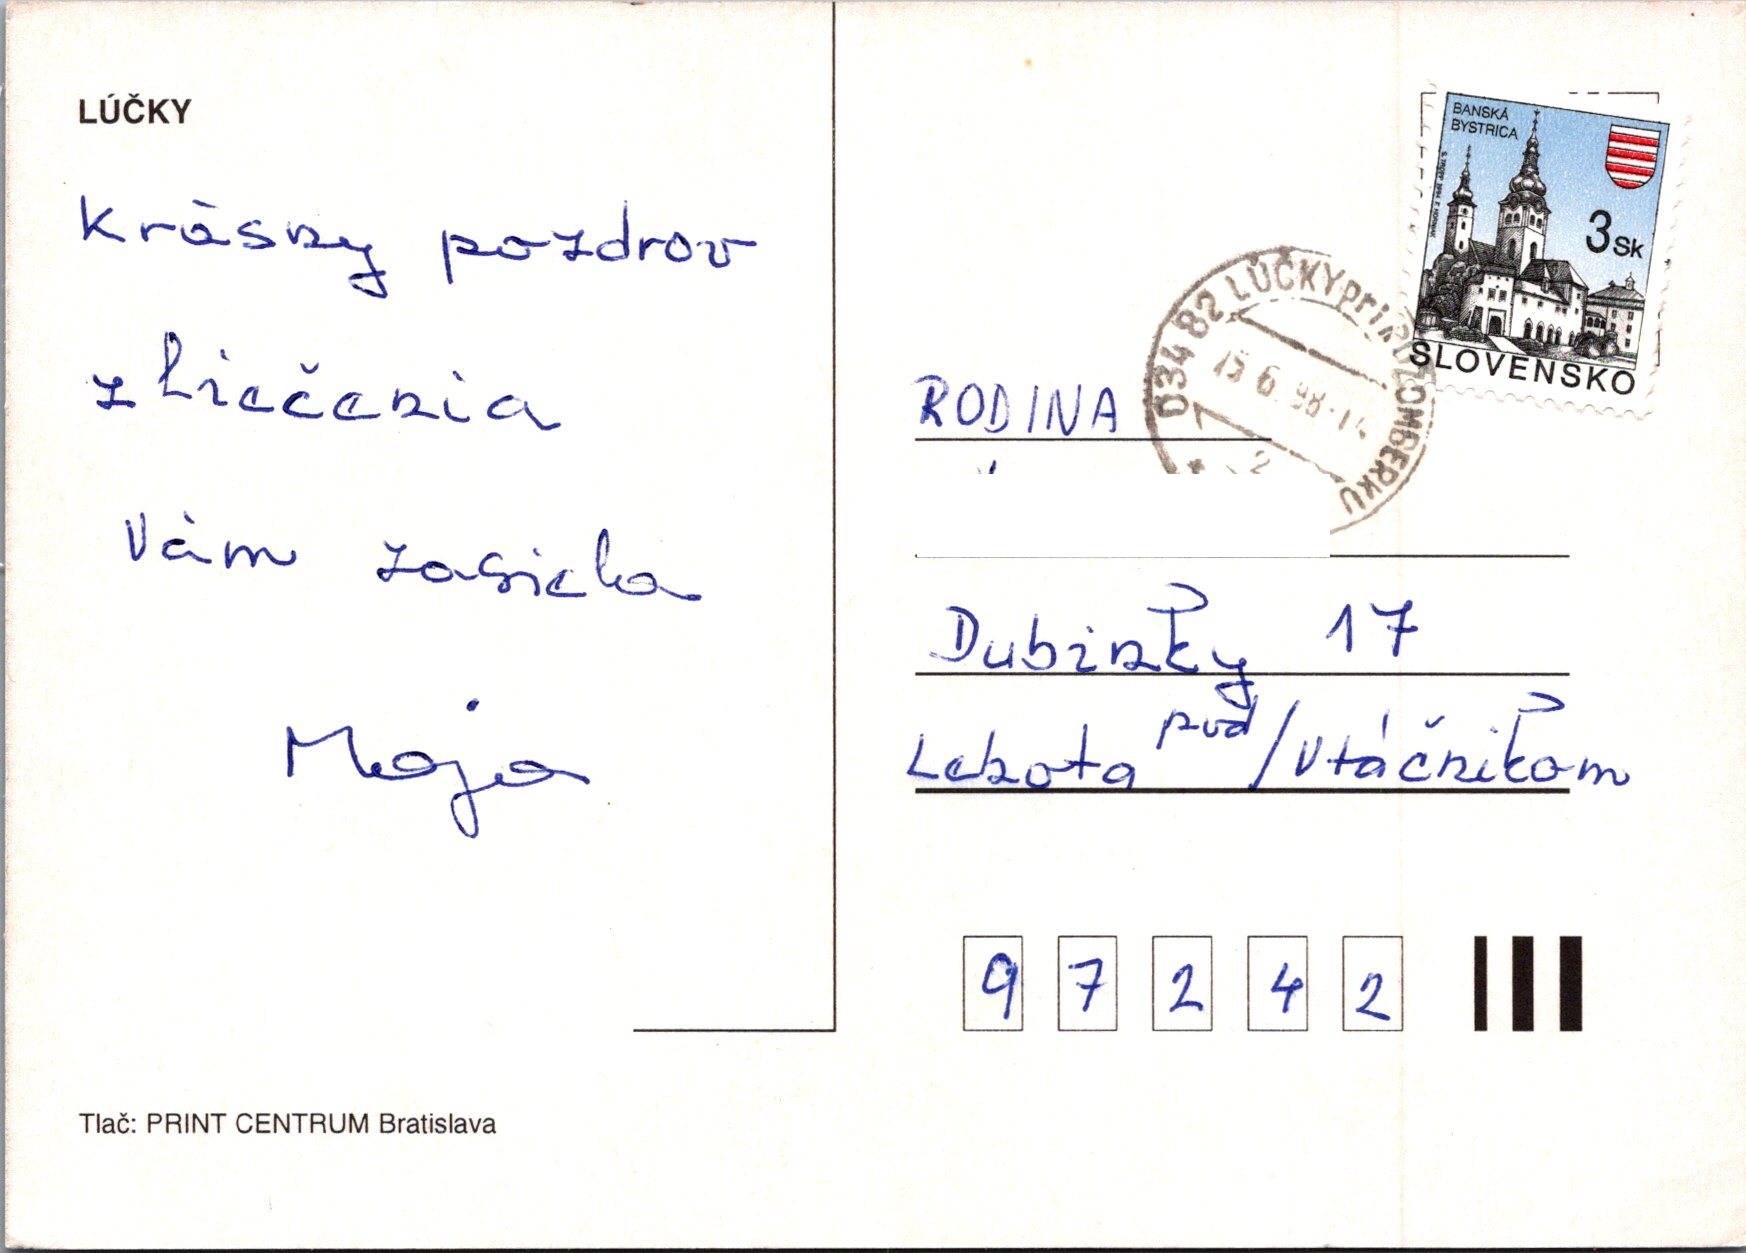 LÚČKY
Krásny pozdrov
z liečenia
Vám zasiela
Maja
Tlač: PRINT CENTRUM Bratislava
BANSKÁ
BYSTRICA
3 SK
SLOVENSKO
034 82 LÚČKY pri RUŽOMBERKU
15.6.98-14
RODINA
Dubinky 17
Lehota pod/Vtáčnikom
9 7 2 4 2